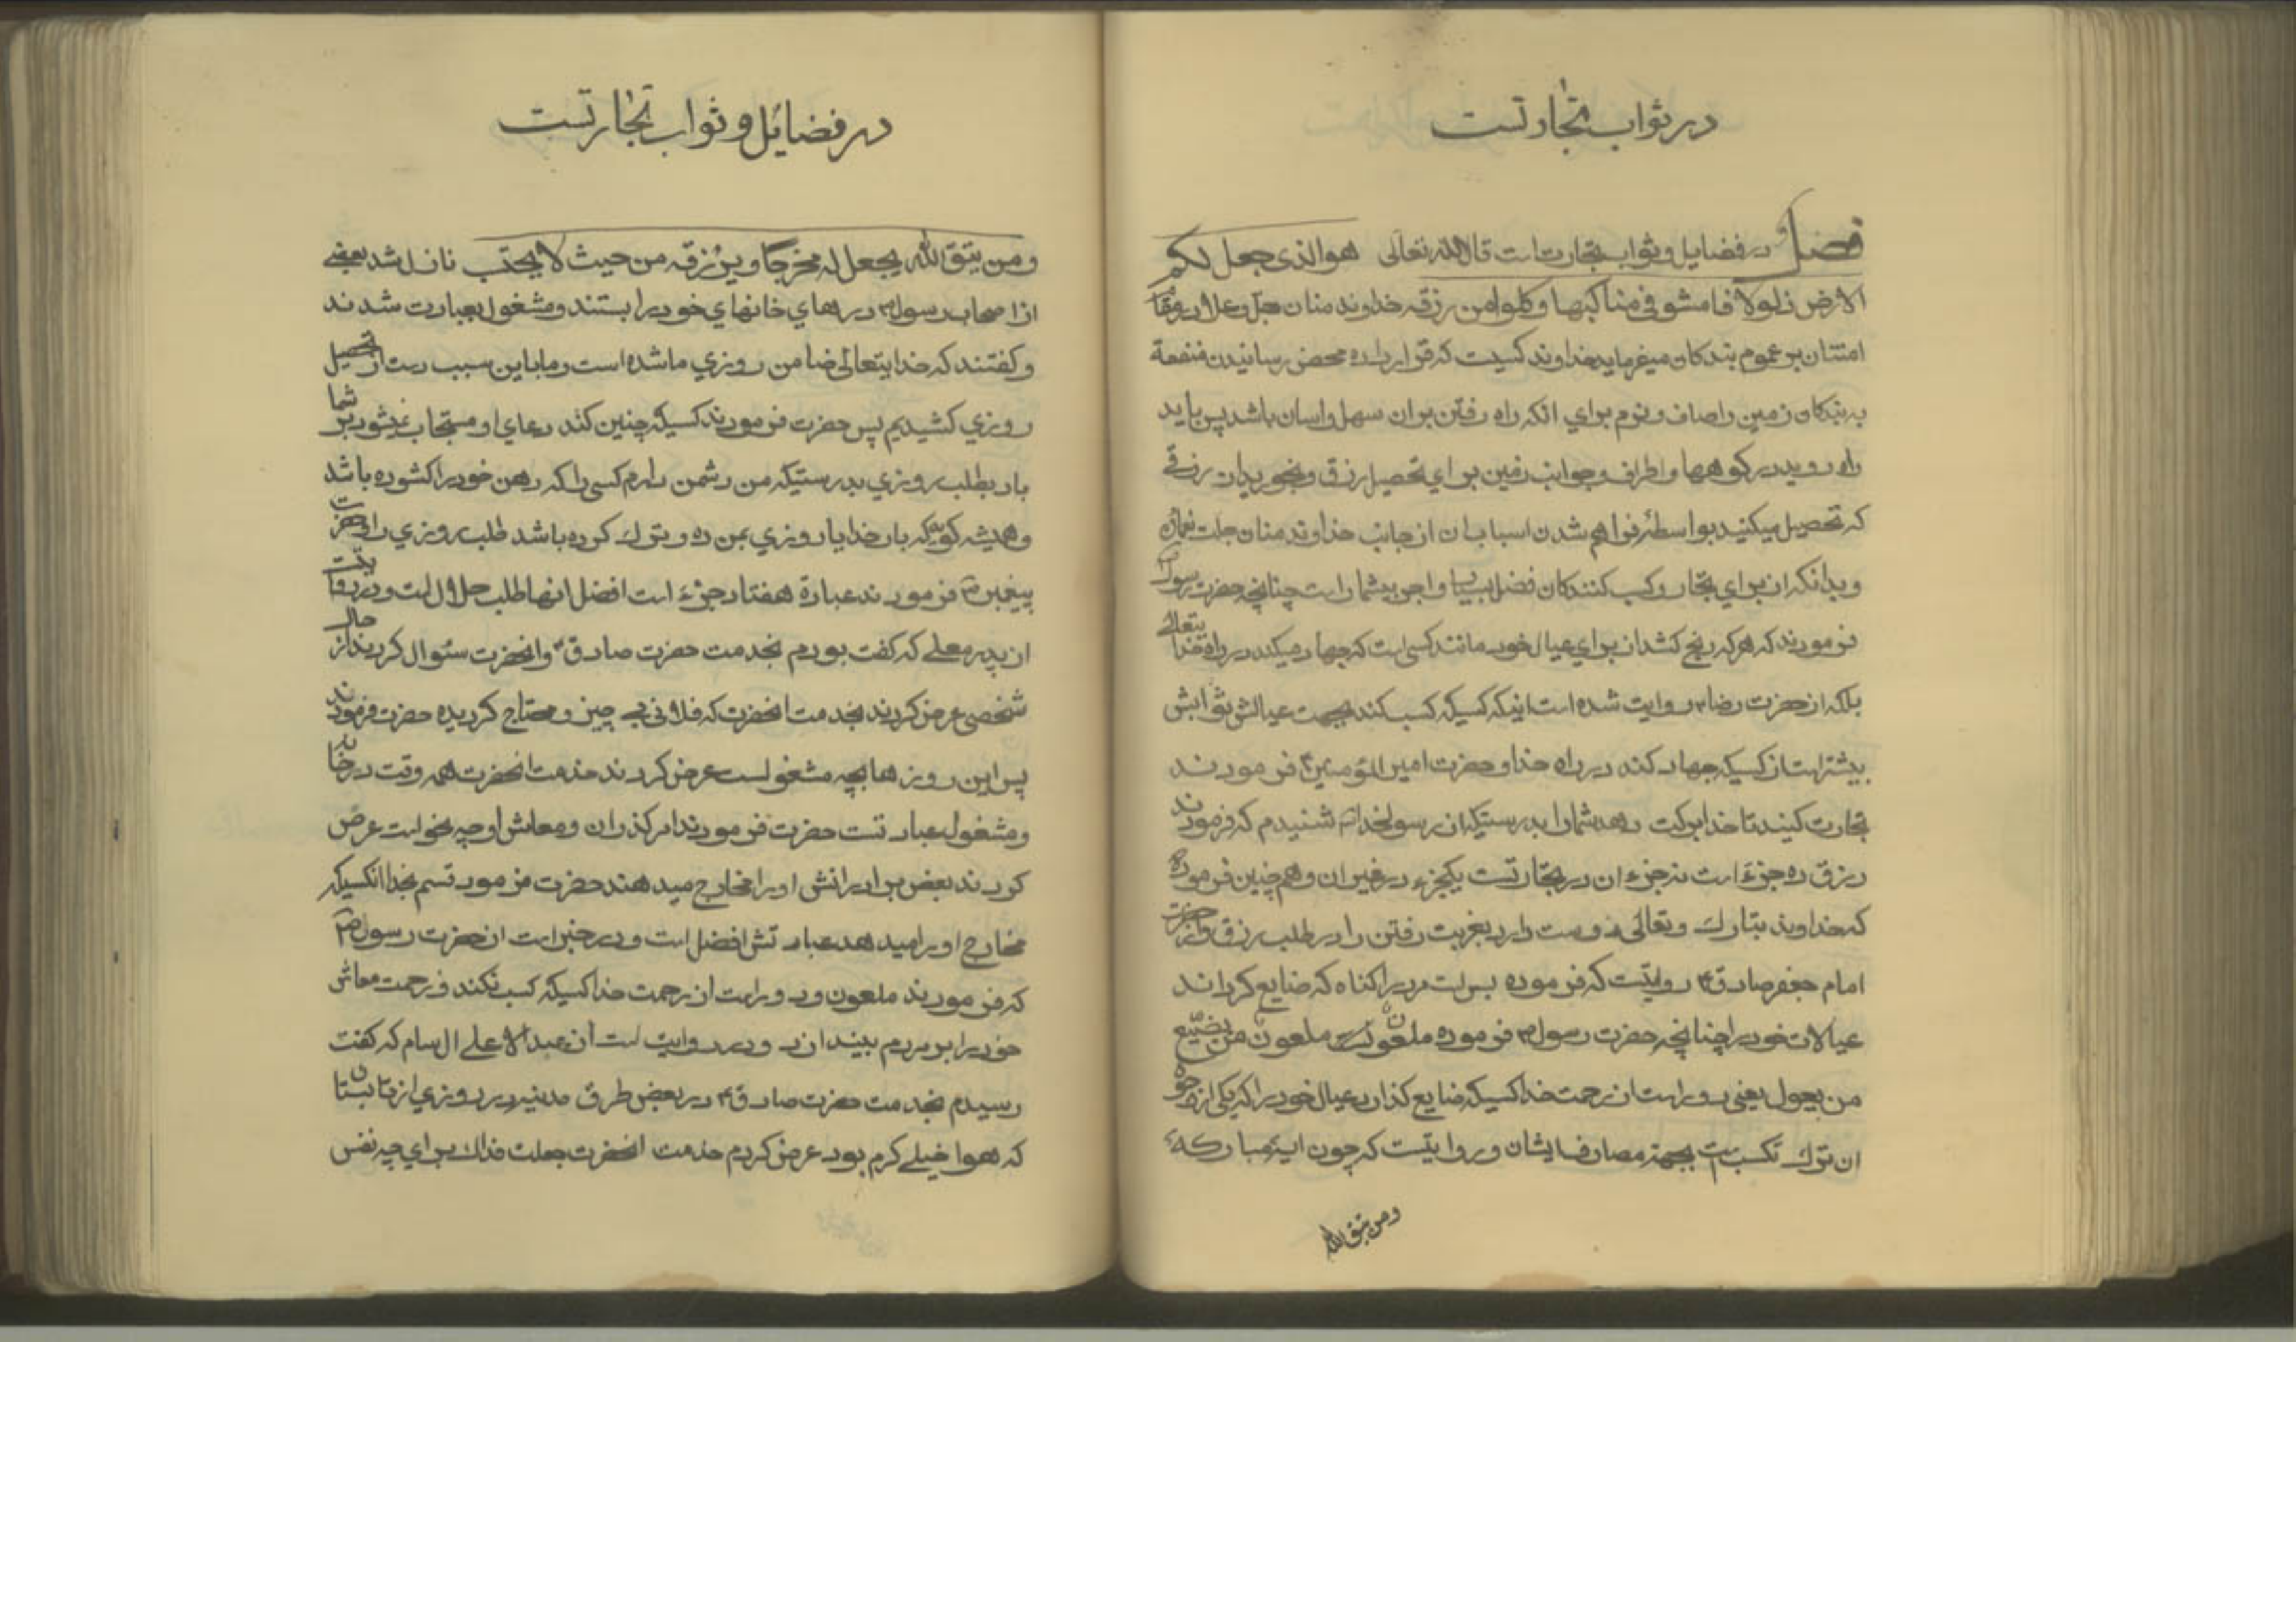 در ثواب تجارتست
فصل در فضایل و ثواب تجارت است قال الله تعالی هوالذی جعل لکم
الارض ذلولا فامشو فی مناکبها و کلوا من رزقه خداوند منان جل وعلا در مقام
امتنان بر عموم بندکان میفرماید خداوند کسیست که قرار داده محض رسانیدن منفعة
به بندکان زمین را صاف و نرم برای انکه راه رفتن بران سهل و اسان باشد پس باید
راه روید در کوهها و اطراف و جوانب زمین برای تحصیل رزق و بخورید ان رزقی
که تحصیل میکنید بواسطۀ فراهم شدن اسباب ان از جانب خداوند منان جلت
و بدانکه از برای تجار و کسب کنندکان فضل بسیار و اجر بیشمار است چنانچه حضرت رسول ص
فرمودند که هر که رنج کشد از برای عیال خود مانند کسی است که جهاد میکند در راه خدایتعالی
بلکه از حضرت رضا ع روایت شده است اینکه کسیکه کسب کند بجهت عیالش ثوابش
بیشتر است از کسیکه جهاد کند در راه خدا و حضرت امیر المؤمنین ع فرمودند
تجارت کنید تا خدا برکت دهد شمارا بدرستیکه از رسولخدا ص شنیدم که فرمودند
رزق ده جزء است نه جزء ان در تجارتست یکجزء در غیر ان و هم چنین فرموده
که خداوند تبارک و تعالی دوست دارد بغربت رفتن را در طلب رزق و از حضرت
امام جعفر صادق ع روایتست که فرموده بس است مرد را کناه که ضایع کرداند
عیالات خود را چنانچه حضرت رسول ص فرموده ملعون ملعون من یضیع
من یعول یعنی دور است از رحمت خدا کسیکه ضایع کذارد عیال خود را که یکی از وجوه
ان ترک تکسب است بجهة مصارف ایشان و روایتست که چون ایۀ مبارکه
ومن یتق الله
در فضایل و ثواب تجارتست
و من یتق الله یجعل له مخرجا و یرزقه من حیث لا یحتسب نازل شد بعضی
از اصحاب رسول ص درهای خانهای خود را بستند و مشغول بعبادت شدند
و کفتند که خدایتعالی ضامن روزی ما شده است و ما باین سبب دست از تحصیل
روزی کشیدیم پس حضرت فرمودند کسیکه چنین کند دعای او مستجاب نمیشود بر شما
باد بطلب روزی بدرستیکه من دشمن دارم کسی را که دهن خود را کشوده باشد
و همیشه کوید که بار خدایا روزی بمن ده و ترک کرده باشد طلب روزی را و حضرت
پیغمبر ص فرمودند عبادة هفتاد جزء است افضل انها طلب حلال است و در روایتست
از پدر معلی که کفت بودم بخدمت حضرت صادق ع و انحضرت سئوال کردند از حال
شخصی عرض کردند بخدمت انحضرت که فلانی بی چیز و محتاج کردیده حضرت فرمودند
پس این روزها بچه مشغولست عرض کردند خدمت انحضرت همه وقت در خانه
و مشغول عبادتست حضرت فرمودند امر کذران و معاش او چه نحو است عرض
کردند بعض برادرانش او را مخارج میدهند حضرت فرمود قسم بخدا انکسیکه
مخارج او را میدهد عبادتش افضل است و در خبر است از حضرت رسول ص
که فرمودند ملعون و دور است از رحمت خدا کسیکه کسب نکند و زحمت معاش
خود را بر مردم بیندازد و در روایت است از عبد الاعلی ال سام که کفت
رسیدم بخدمت حضرت صادق ع در بعض طرق مدینه در روزی از تابستان
که هوا خیلی کرم بود عرض کردم خدمت انحضرت جعلت فداک برای چه نفس